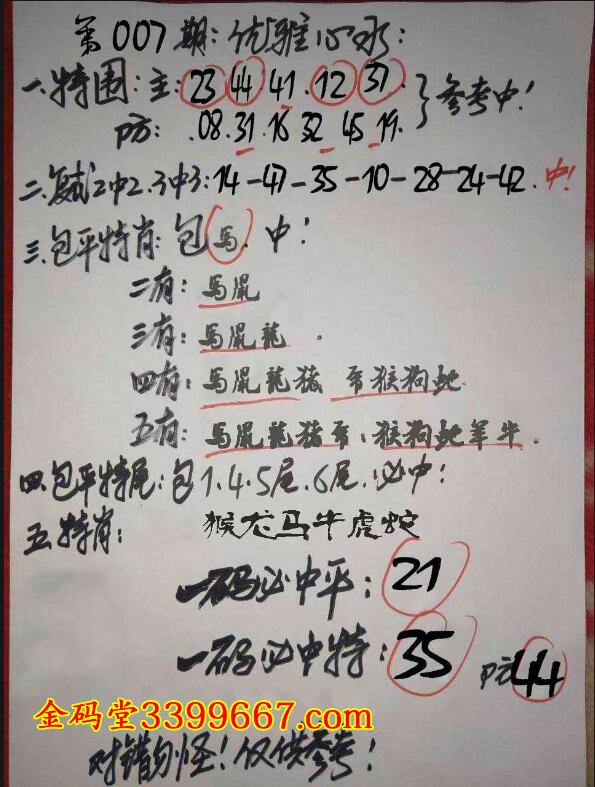 第007期:优雅心水:
一.特围:主:23 44.41.12 37.
防:.08.31.16 32 45 19.
参考中!
二.复试2中2.3中3:14-47-35-10-28-24-42.中!
三.包平特肖:包馬.中!
二有:馬鼠
三有:馬鼠龍.
四有:馬鼠龍豬 帝猴狗虵
五有:馬鼠龍豬帝:猴狗虵羊牛.
四.包平特尾:包1.4.5尾.6尾.必中!
五.特肖:猴龙马牛虎蛇
一码必中平:21
一码必中特:35 防44
金码堂3399667.com
对错勿怪!仅供参考!